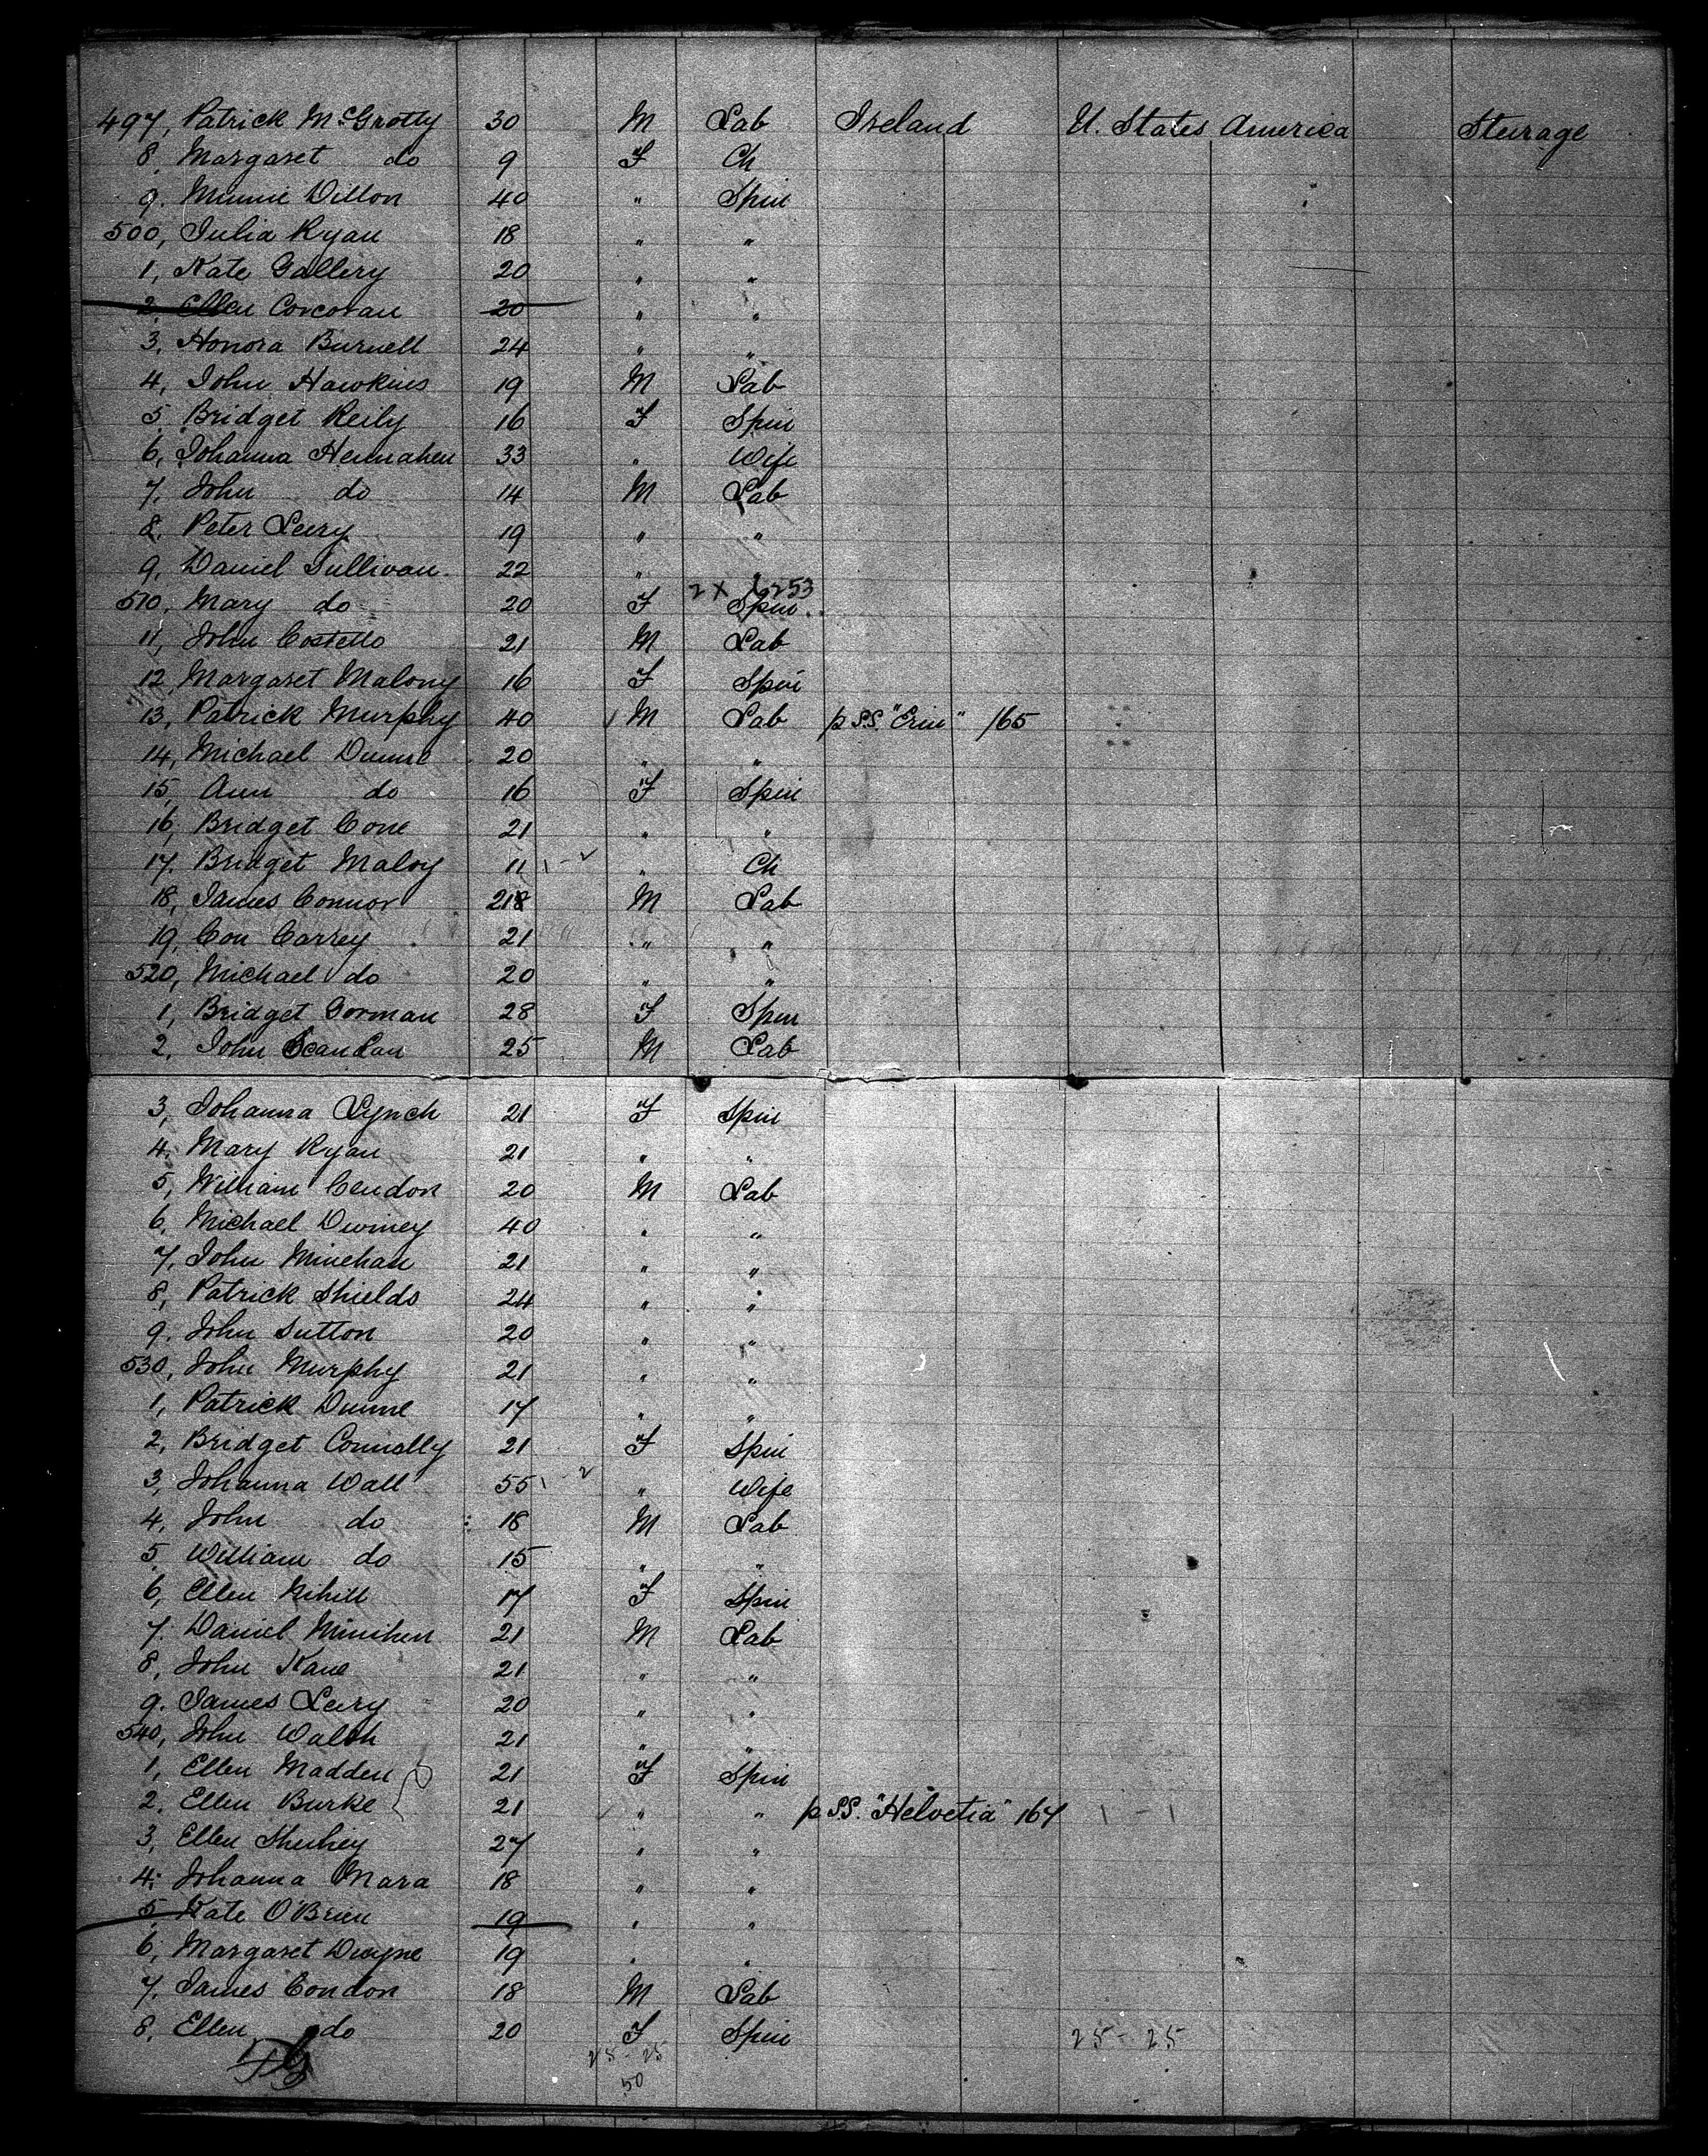 497, Patrick McGrotty 30 M Lab Ireland U. States America Steerage
8, Margaret do 9 F Ch
9, Minnie Dillon 40 " Spin
500, Julia Ryan 18 " "
1, Kate Gallery 20 " "
2, Ellen Corcoran 20 " "
3, Honora Burnell 24 " "
4, John Hawkins 19 M Lab
5, Bridget Reily 16 F Spin
6, Johanna 33 " Wife
7, John do 14 M Lab
8, Peter Leery 19 " "
9, Daniel Sullivan 22 "
2 X 6253
510, Mary do 20 F Spin
11, John Costello 21 M Lab
12, Margaret Malony 16 F Spin
13, Patrick Murphy 40 M Lab p S.S. "Erin" 165
14, Michael Dunne 20 " "
15, Ann do 16 F Spin
16, Bridget Cone 21 " "
17, Bridget Maloy 11 " Ch
18, James Connor M Lab
19, Con Carrey 21 " "
520, Michael do 20 " "
1, Bridget Gorman 28 F Spin
2, John Scanlan 25 M Lab
3, Johanna Lynch 21 F Spin
4, Mary Ryan 21 " "
5, William Cendon 20 M Lab
6, Michael Dwiney 40 " "
7, John Minehan 21 " "
8, Patrick Shields 24 " "
9, John Sutton 20 " "
530, John Murphy 21 " "
1, Patrick Dunne 17 " "
2, Bridget Connolly 21 F Spin
3, Johanna Wall 55 " Wife
4, John do 18 M Lab
5, William do 15 " "
6, Ellen Gihill 17 F Spin
7, Daniel Minihen 21 M Lab
8, John Kane 21 " "
9, James Leery 20 " "
540, John Walsh 21 " "
1, Ellen Madden 21 F Spin
2, Ellen Burke 21 " " p S.S. "Helvetia" 167 1 - 1
3, Ellen Sheehey 27 " "
4, Johanna Mara 18 " "
5, Kate O'Brien 19 " "
6, Margaret Dwyne 19 " "
7, James Condon 18 M Lab
8, Ellen do 20 F Spin 25 - 25
25 - 25
50